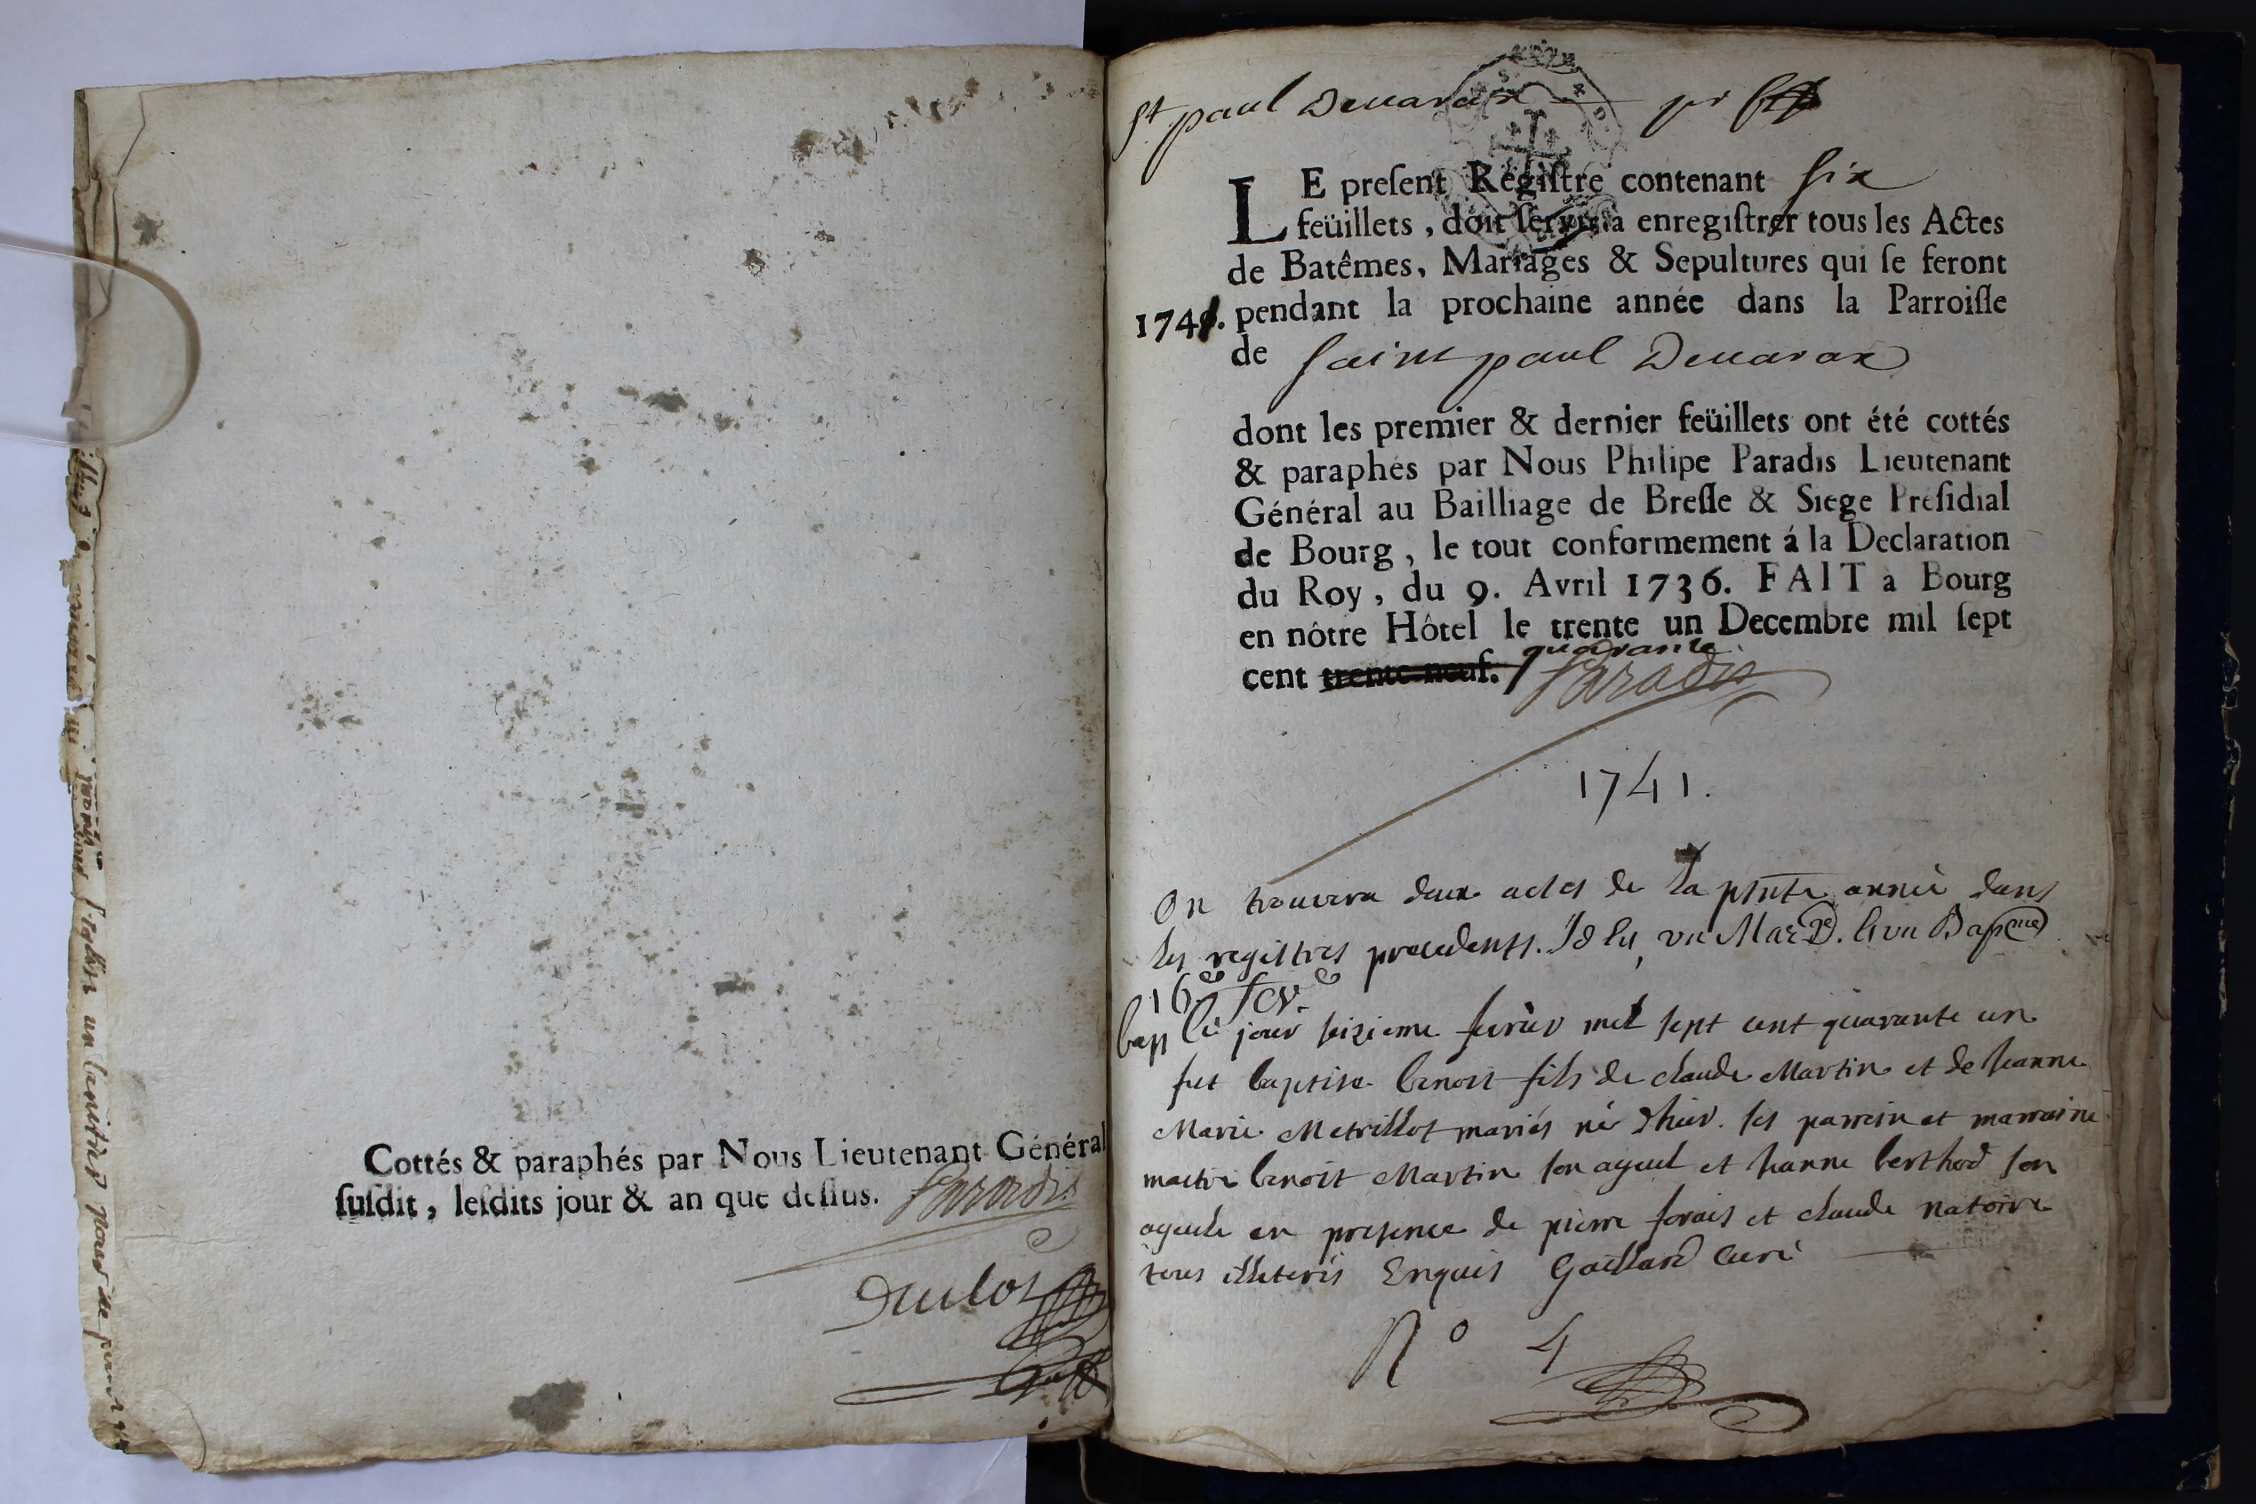 Cottés & paraphés par Nous Lieutenant Général
susdit, lesdits jour & an que dessus. Paradis
Duclos
Greff
St paul Deuarax pr
LE present Registre contenant six
feüillets, doit servir à enregistrer tous les Actes
de Batêmes, Mariages & Sepultures qui se feront
1741. pendant la prochaine année dans la Parroisse
de Saint paul Deuarax
dont les premier & dernier feüillets ont été cottés
& paraphés par Nous Philipe Paradis Lieutenant
Général au Bailliage de Bresse & Siege Présidial
de Bourg, le tout conformement á la Declaration
du Roy, du 9. Avril 1736. FAIT à Bourg
en nôtre Hôtel le trente un Decembre mil sept
cent trente-neuf. quarante Paradis
1741.
On trouvera deux actes de la pnte année dans
les registres precedents. un Mar. & un Bap
16e fev.e
bap Ce jour seizieme fevrier mil sept cent quarante un
fut baptise benoit fils de claude Martin et de Jeanne
Marie Metrillot mariés né d'hier. ses parrein et marraine
maitre benoit Martin son ayeul et Jeanne berthod son
ayeule en presence de pierre forais et claude natoire
tous illiterés Enquis Gaillard curé
No 4